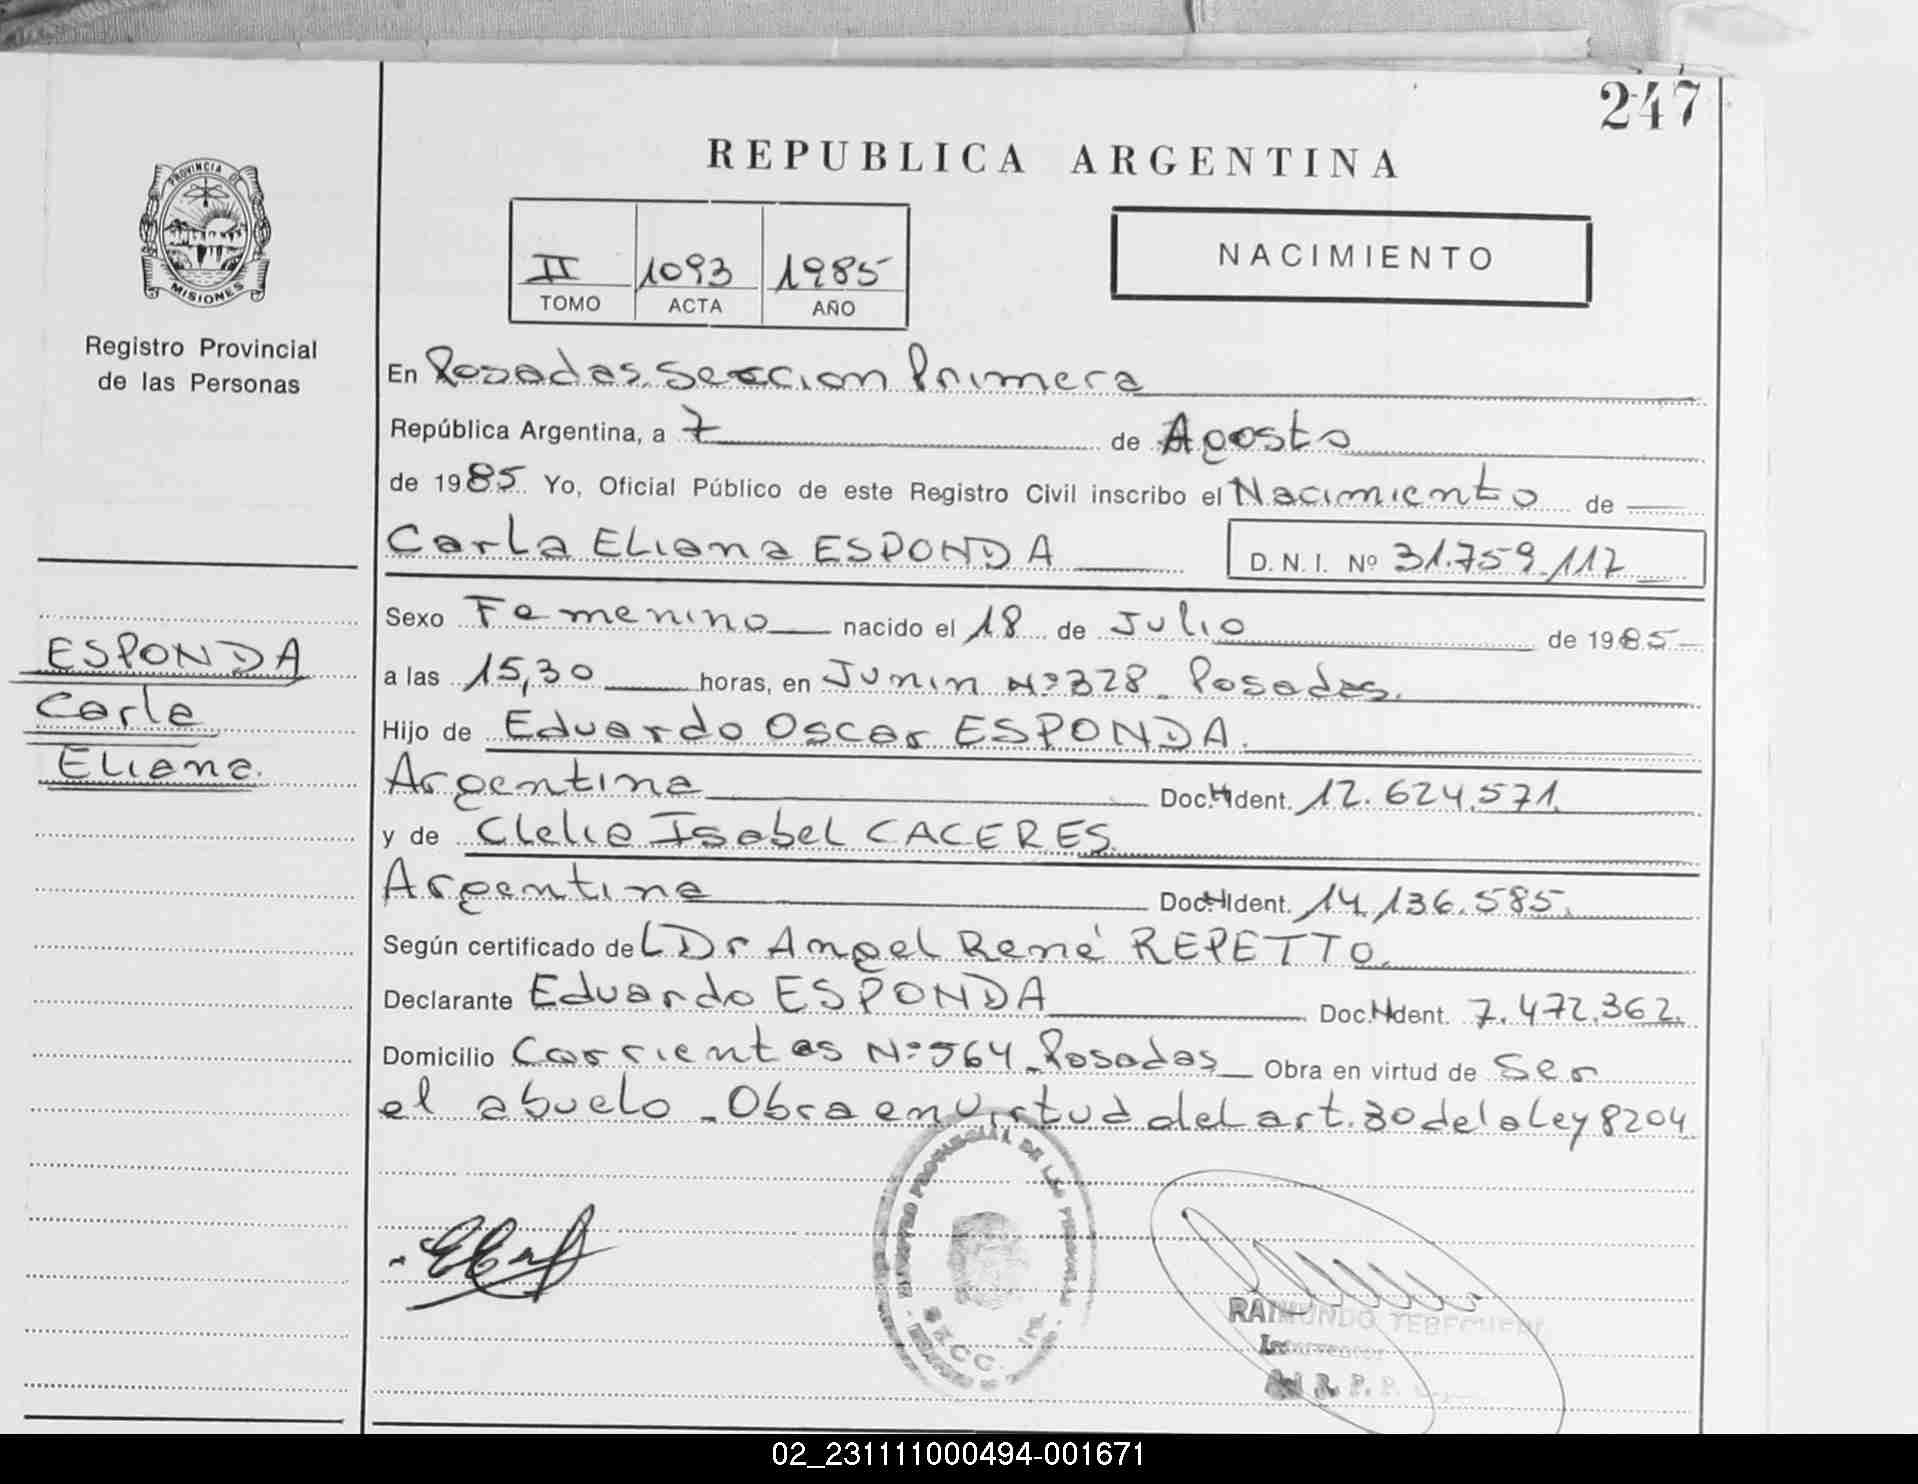 247
REPUBLICA ARGENTINA
PROVINCIA DE
MISIONES
Registro Provincial
de las Personas
II 1093 1985
TOMO ACTA AÑO
NACIMIENTO
En Posadas. Seccion Primera
República Argentina, a 7 de Agosto
de 1985. Yo, Oficial Público de este Registro Civil inscribo el Nacimiento de
Carla Eliana ESPONDA D. N. I. Nº 31.759.117
Sexo Femenino nacido el 18 de Julio de 1985
a las 15,30 horas, en Junin Nº 328. Posadas.
Hijo de Eduardo Oscar ESPONDA.
Argentina Doc. Ident. 12.624.571.
y de Clelia Isabel CACERES.
Argentina Doc. Ident. 14.136.585.
Según certificado del Dr Angel René REPETTO.
Declarante Eduardo ESPONDA Doc. Ident. 7.472.362.
Domicilio Corrientes Nº 564. Posadas Obra en virtud de ser
el abuelo. Obra en virtud del art. 30 de la Ley 8204
ESPONDA
Carla
Eliana.
REGISTRO PROVINCIAL DE LAS PERSONAS
RAIMUNDO
Interventor
del R. P. P.
02_231111000494-001671